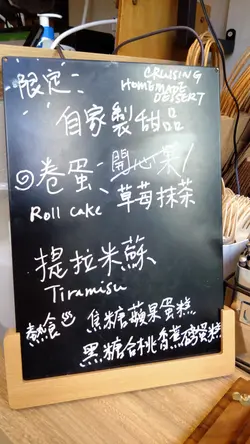 限定：
CRUISING
HOMEMADE
DESSERT
自家製甜品
卷蛋：開心果/
Roll cake 草莓抹茶
提拉米穌
Tiramisu
熱食 焦糖蘋果蛋糕
黑糖合桃香蕉磅蛋糕